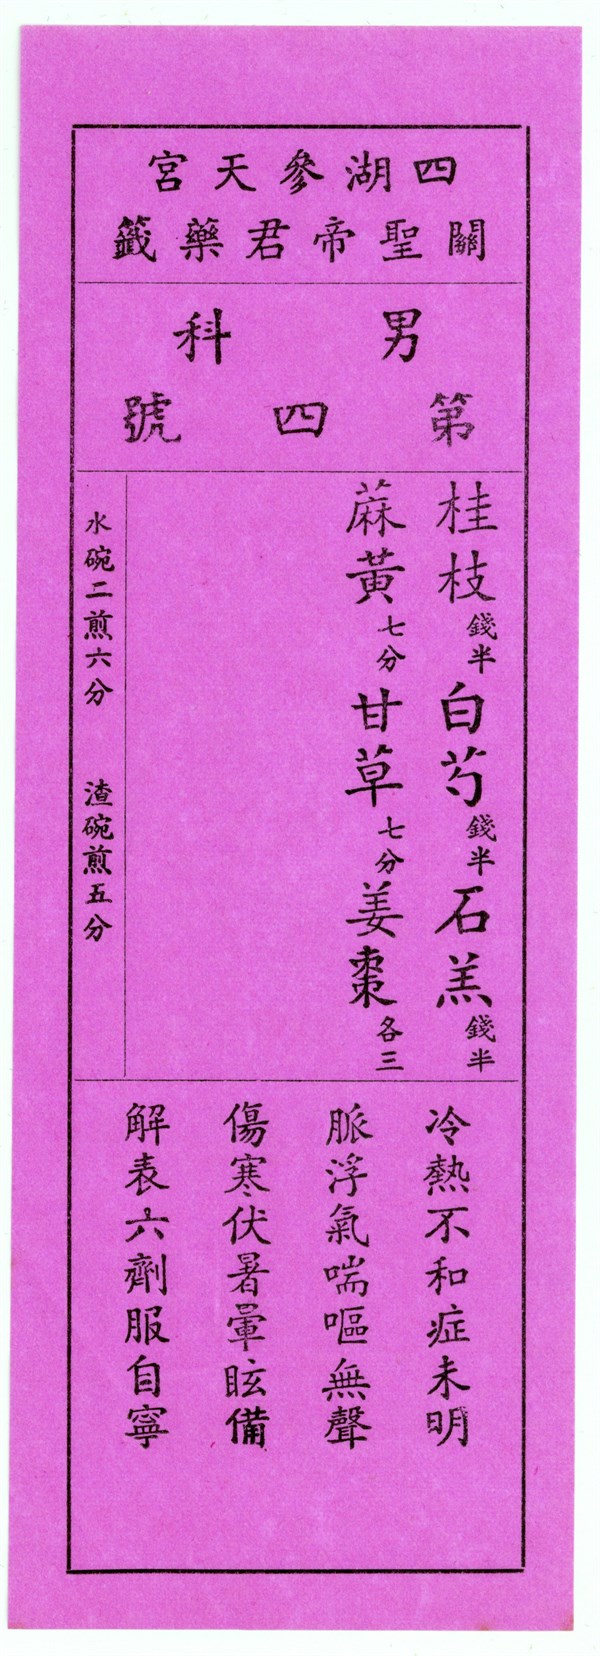 四湖參天宮
關聖帝君藥籤
男科
第四號
桂枝錢半白芍錢半石羔錢半
蔴黃七分甘草七分姜棗各三
水碗二煎六分　渣碗煎五分
冷熱不和症未明
脈浮氣喘嘔無聲
傷寒伏暑暈眩備
解表六劑服自寧